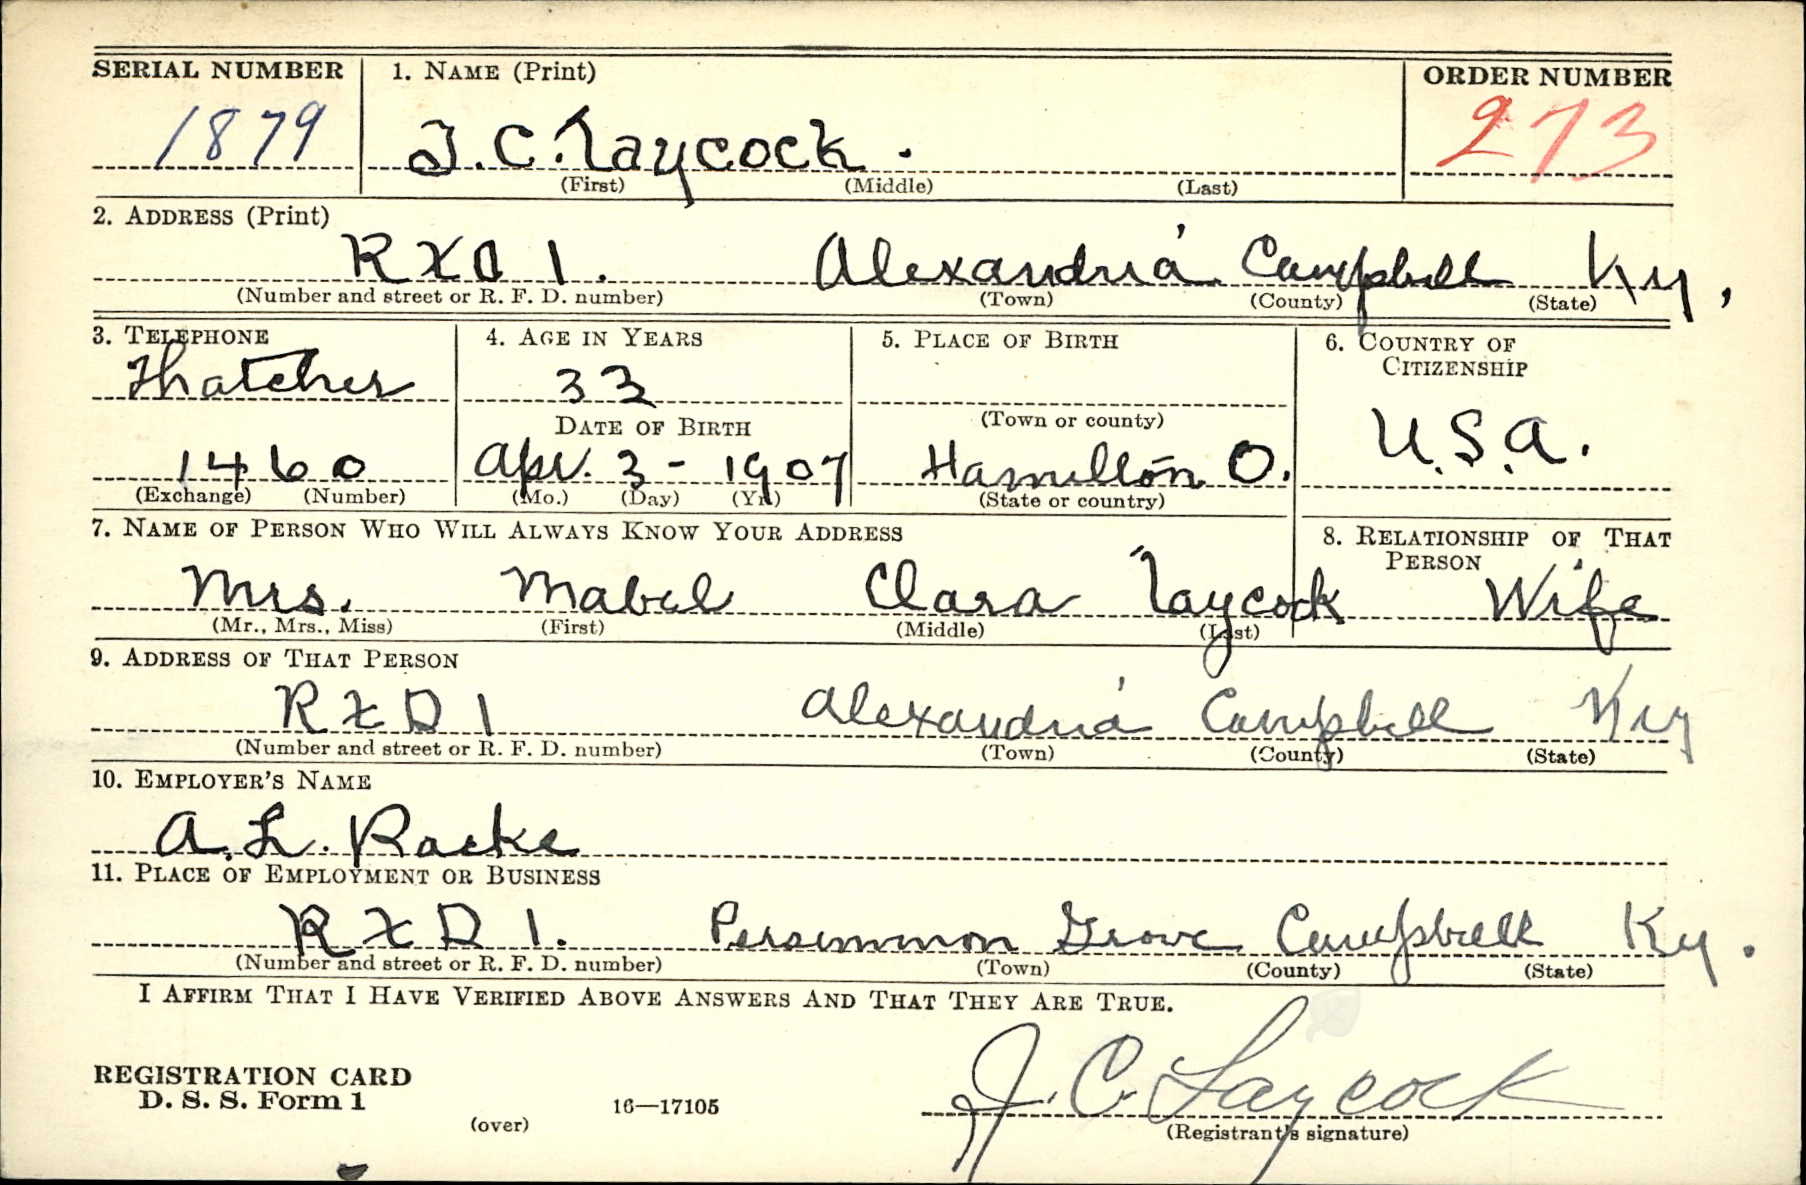 SERIAL NUMBER 1. NAME (Print) ORDER NUMBER
1879 J. C. Laycock. 273
(First) (Middle) (Last)
2. ADDRESS (Print)
R F D 1. Alexandria Campbell Ky.
(Number and street or R. F. D. number) (Town) (County) (State)
3. TELEPHONE 4. AGE IN YEARS 5. PLACE OF BIRTH 6. COUNTRY OF
CITIZENSHIP
Thatcher 33
DATE OF BIRTH (Town or county) U.S.A.
1460 Apr. 3 - 1907 Hamilton O.
(Exchange) (Number) (Mo.) (Day) (Yr.) (State or country)
7. NAME OF PERSON WHO WILL ALWAYS KNOW YOUR ADDRESS 8. RELATIONSHIP OF THAT
PERSON
Mrs. Mabel Clara Laycock Wife
(Mr., Mrs., Miss) (First) (Middle) (Last)
9. ADDRESS OF THAT PERSON
R F D 1 Alexandria Campbell Ky
(Number and street or R. F. D. number) (Town) (County) (State)
10. EMPLOYER'S NAME
A. L. Racke
11. PLACE OF EMPLOYMENT OR BUSINESS
R F D 1. Persimmon Grove Campbell Ky.
(Number and street or R. F. D. number) (Town) (County) (State)
I AFFIRM THAT I HAVE VERIFIED ABOVE ANSWERS AND THAT THEY ARE TRUE.
REGISTRATION CARD
D. S. S. Form 1 16—17105 J. C. Laycock
(over) (Registrant's signature)